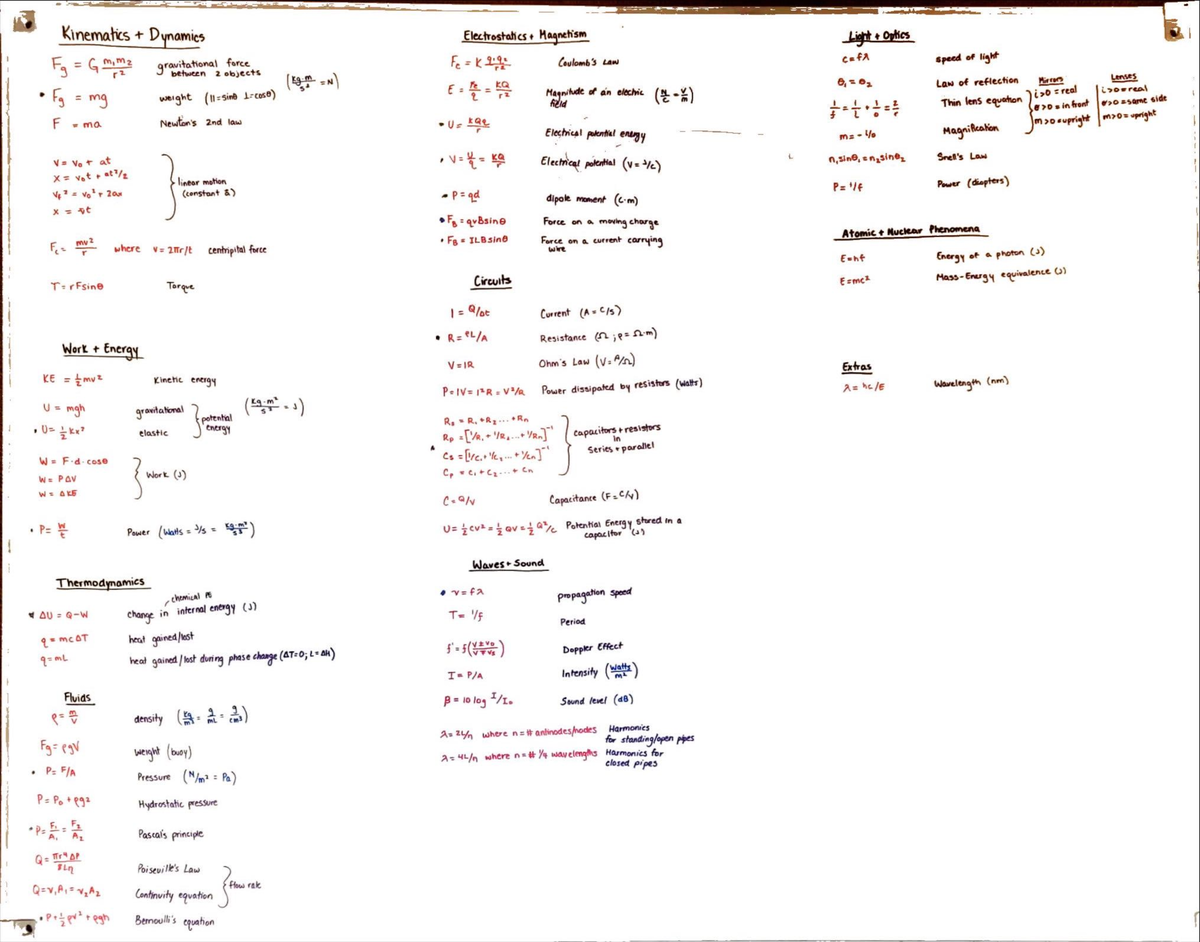 Kinematics + Dynamics
Fg = G m₁m₂/r² gravitational force between 2 objects
• Fg = mg weight (11=sinθ ⊥=cosθ) (kg·m/s² = N)
F = ma Newton's 2nd law
V = V₀ + at
X = V₀t + at²/2
Vf² = V₀² + 2ax
X = v̄t
linear motion
(constant a)
Fc = mv²/r where v = 2πr/t centripital force
T = rFsinθ Torque
Work + Energy
KE = ½mv² Kinetic energy
U = mgh gravitational
• U = ½kx² elastic
potential energy (kg·m²/s² = J)
W = F·d·cosθ
W = PΔV
W = ΔKE
Work (J)
• P = W/t Power (Watts = J/s = kg·m²/s³)
Thermodynamics
chemical PE
* ΔU = Q-W change in internal energy (J)
q = mcΔT heat gained/lost
q = mL heat gained/lost during phase change (ΔT=0; L=ΔH)
Fluids
ρ = m/V density (kg/m³ = g/mL = g/cm³)
Fg = ρgV weight (buoy)
• P = F/A Pressure (N/m² = Pa)
P = P₀ + ρgz Hydrostatic pressure
• P = F₁/A₁ = F₂/A₂ Pascal's principle
Q = πr⁴ΔP/8Lη Poiseville's Law
Q = v₁A₁ = v₂A₂ Continuity equation
flow rate
• P + ½ρv² + ρgh Bernoulli's equation
Electrostatics + Magnetism
Fe = K q₁q₂/r² Coulomb's Law
E = Fe/q = KQ/r² Magnitude of an electric field (N/C = V/m)
• U = KQq/r Electrical potential energy
• V = U/q = KQ/r Electrical potential (V = J/C)
• P = qd dipole moment (C·m)
• FB = qvBsinθ Force on a moving charge
• FB = ILBsinθ Force on a current carrying wire
Circuits
I = Q/Δt Current (A = C/s)
• R = ρL/A Resistance (Ω ; ρ = Ω·m)
V = IR Ohm's Law (V = A/Ω)
P = IV = I²R = V²/R Power dissipated by resistors (watts)
Rs = R₁ + R₂ ... + Rn
Rp = [1/R₁ + 1/R₂ ... + 1/Rn]⁻¹
Cs = [1/C₁ + 1/C₂ ... + 1/Cn]⁻¹
Cp = C₁ + C₂ ... + Cn
capacitors + resistors
in
Series + parallel
C = Q/V Capacitance (F = C/V)
U = ½CV² = ½QV = ½Q²/C Potential Energy stored in a capacitor (J)
Waves + Sound
• v = fλ propagation speed
T = 1/f Period
f' = f(V ± V₀/V ∓ Vs) Doppler Effect
I = P/A Intensity (Watts/m²)
β = 10 log I/I₀ Sound level (dB)
λ = 2L/n where n = # antinodes/nodes Harmonics for standing/open pipes
λ = 4L/n where n = # 1/4 wavelengths Harmonics for closed pipes
Light + Optics
c = fλ speed of light
θ₁ = θ₂ Law of reflection
1/f = 1/i + 1/o = 2/r Thin lens equation
Mirrors
i>0 = real
o>0 = in front
m>0 = upright
Lenses
i>0 = real
o>0 = same side
m>0 = upright
m = -i/o Magnification
n₁sinθ₁ = n₂sinθ₂ Snell's Law
P = 1/f Power (diopters)
Atomic + Nuclear Phenomena
E = hf Energy of a photon (J)
E = mc² Mass-Energy equivalence (J)
Extras
λ = hc/E Wavelength (nm)